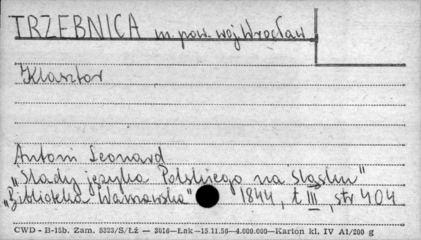 TRZEBNICA m. pow. woj Wrocław
Klasztor
Antoni Leonard
"Slady języka Polskiego na Sląsku"
"Biblioteka Warszawska" 1844, t III, str 404
CWD - B-15b. Zam. 5323/S/Łż — 3016—Łak—15.11.50—4.000.000—Karton kl. IV A1/200 g